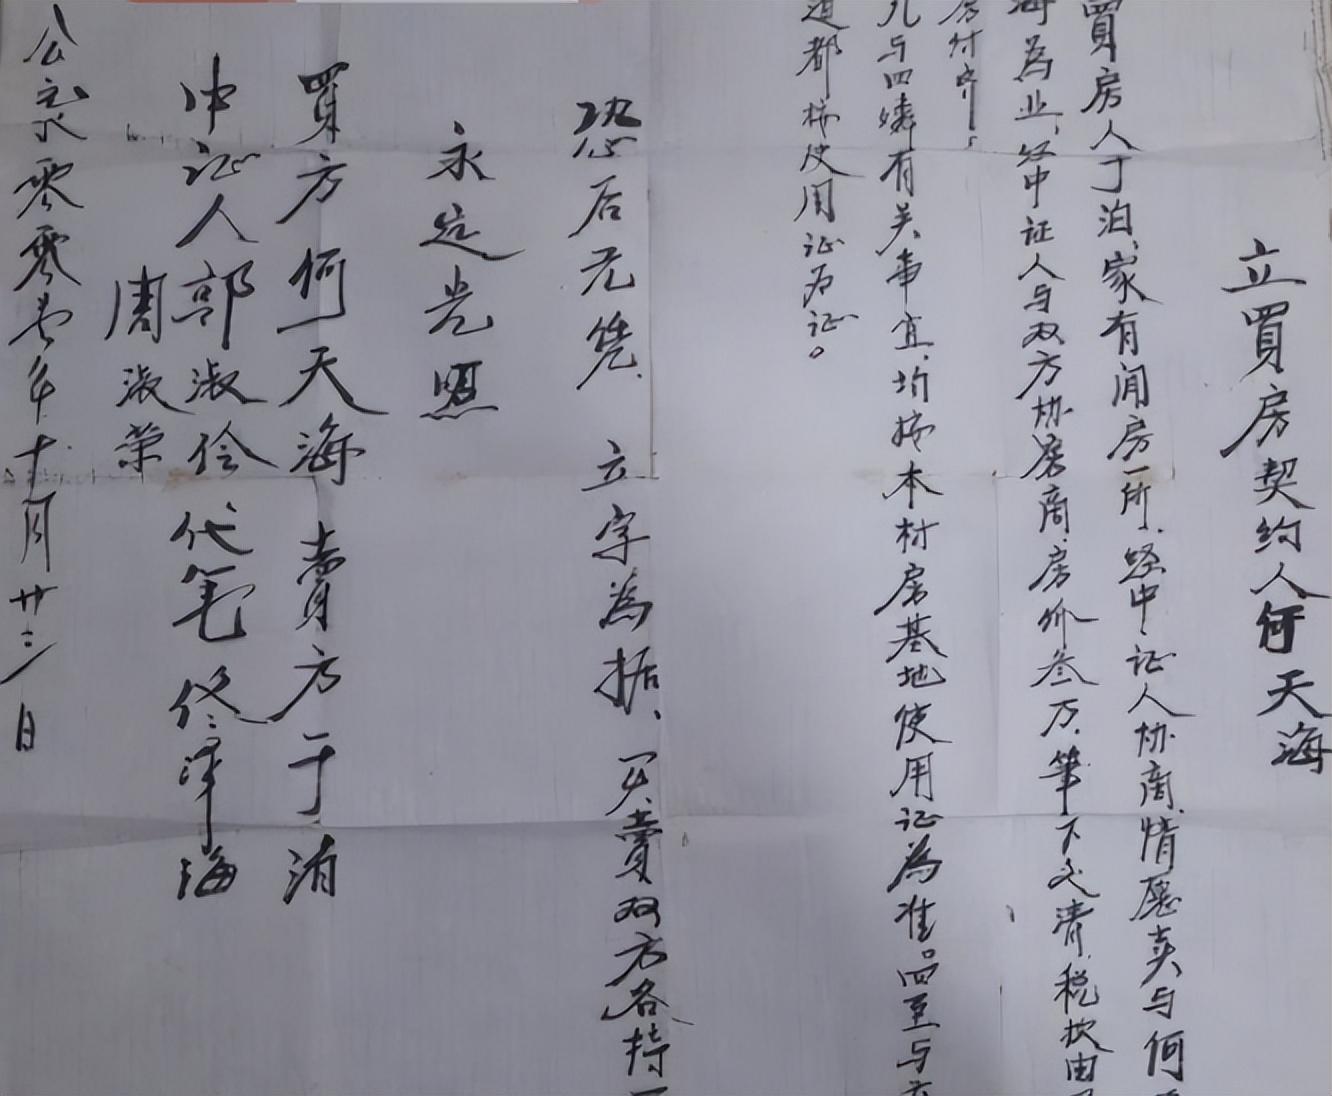 立買房契约人何天海
買房人于泊、家有闲房一所、経中、证人协商、情愿卖与何
海為业、经中证人与双方协房商、房价叁万、筆下交清、税按由
房付齐、
凡与四嶙有关事宜、均按本村房基地使用证為准。四至与
道都按使用证为证。
恐后无凭、立字為据、买賣双方各持一
永远光照
買方何天海 賣方于泊
中证人郭淑伶 代笔佟泽海
周淑荣
公元貳零零壹年十月廿三日